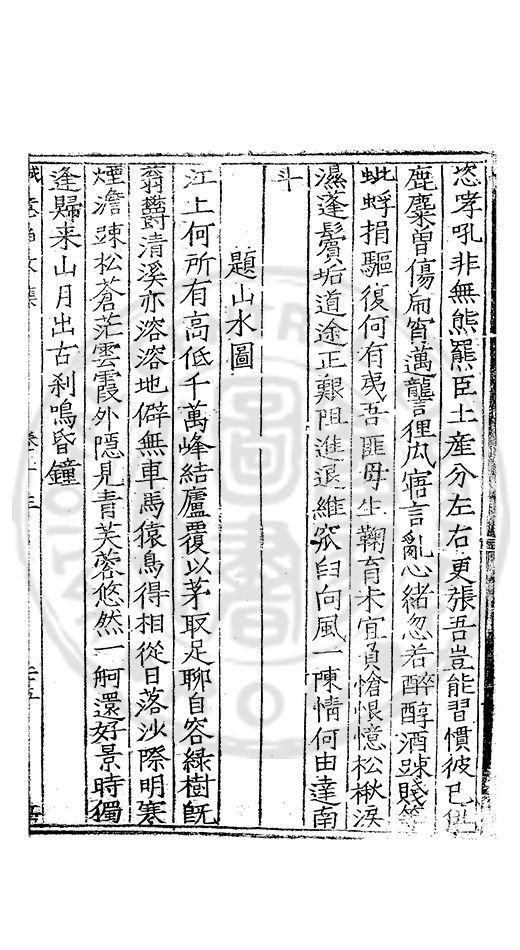 恣哮吼非無熊羆臣土産分左右更張吾豈能習慣彼已
鹿麋曽傷宵邁讋狸瓜寤言亂心緒忽若醉醇酒踈賤等
蚍蜉捐驅復何有夷吾匪毋生鞠育未宜負愴悢憶松楸淚
濕蓬鬢垢道途正艱阻進退維臼向風一陳情何由達南
斗
題山水圖
江上何所有高低千萬峰結廬覆以茅取足聊自容緑樹旣
蓊鬱清溪亦溶溶地僻無車馬猿鳥得相從日落沙際明寒
煙澹踈松蒼茫雲霞外隱見青芙蓉悠然一舸還好景時獨
逢歸来山月出古刹鳴昏鐘